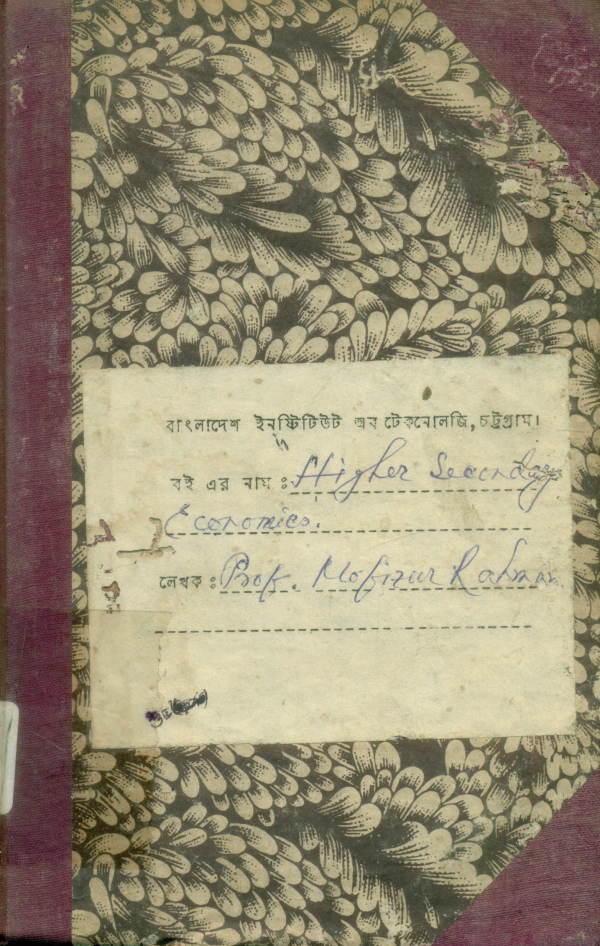 বাংলাদেশ ইনষ্টিটিউট অব টেকনোলজি, চট্টগ্রাম।
বই এর নাম : Higher Secondary
Economics.
লেখক : Prof. Mofizur Rahman